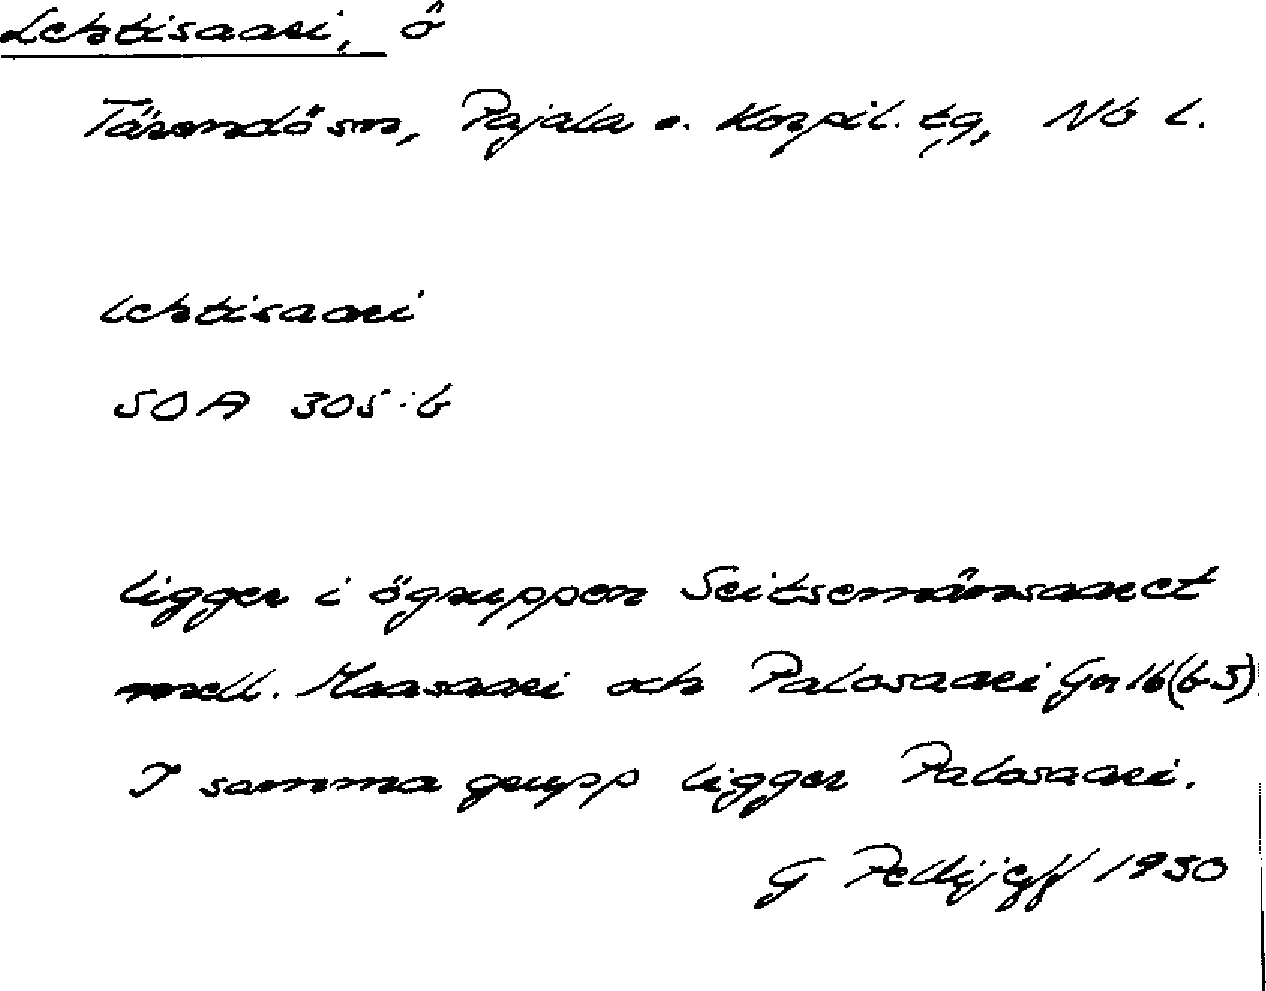 Lehtisaari, ö
Tärendö sn, Pajala o. Korpil. tg, Nb l.
Lehtisaari
SOA 305:6
Ligger i ögruppen Seitsemänsaaret
mell. Maasaari och Palosaari Gn 16(b5)
I samma grupp ligger Palosaari.
G Pellijeff 1950